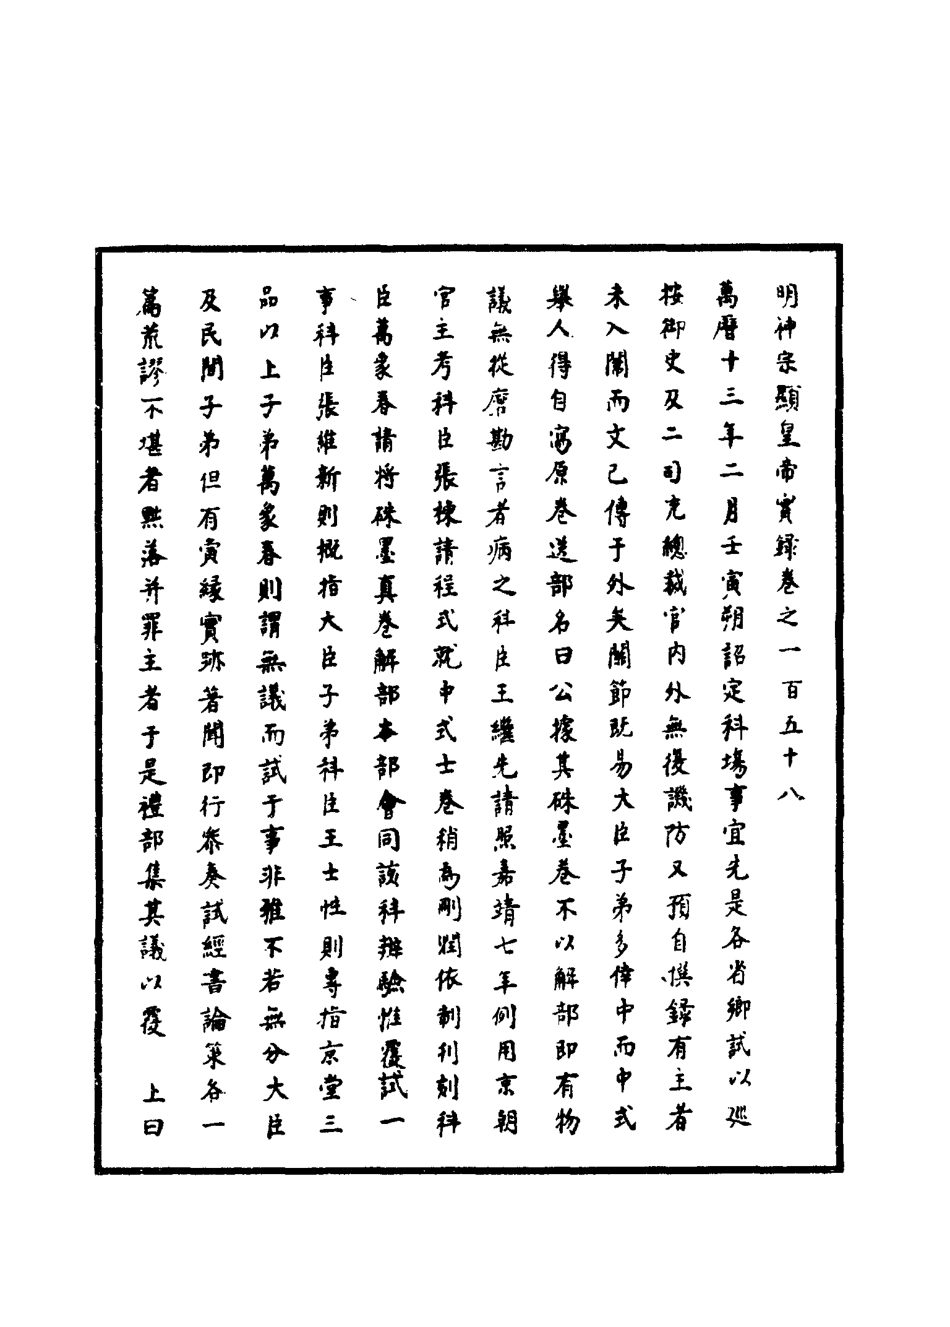 明神宗顯皇帝實錄卷之一百五十八
萬曆十三年二月壬寅朔詔定科塲事宜先是各省鄉試以廵
按御史及二司充總裁官內外無復譏防又預自撰錄有主者
未入闈而文已傳于外矣關節既易大臣子弟多倖中而中式
舉人得自寫原卷送部名曰公據其硃墨卷不以解部即有物
議無從磨勘言者病之科臣王繼先請照嘉靖七年例用京朝
官主考科臣張棟請程式就中式士卷稍為刪潤依制刊刻科
臣萬象春請將硃墨真卷解部本部會同該科辨驗惟覆試一
事科臣張維新則概指大臣子弟科臣王士性則專指京堂三
品以上子弟萬象春則謂無議而試于事非雅不若無分大臣
及民間子弟但有寅緣實跡著聞即行叅奏試經書論策各一
篇荒謬不堪者黜落并罪主者于是禮部集其議以覆　上曰